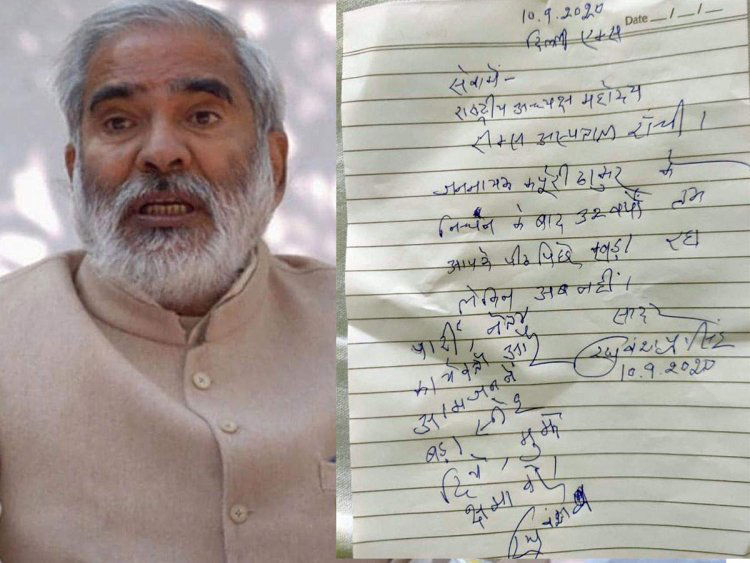 10.9.2020
Date __/__/__
दिल्ली एम्स
सेवामें-
राष्ट्रीय अध्यक्ष महोदय
रिम्स अस्पताल राँची।
जननायक कर्पूरी ठाकुर के
निधन के बाद 32 वर्षों तक
आपके पीठ पिछे खड़ा रहा
लेकिन अब नहीं।
सादर
पार्टी, नेता
रघुवंश प्र॰ सिंह
10.9.2020
आमजन ने
बड़ा स्नेह
दिये, मुझे
क्षमा करें।